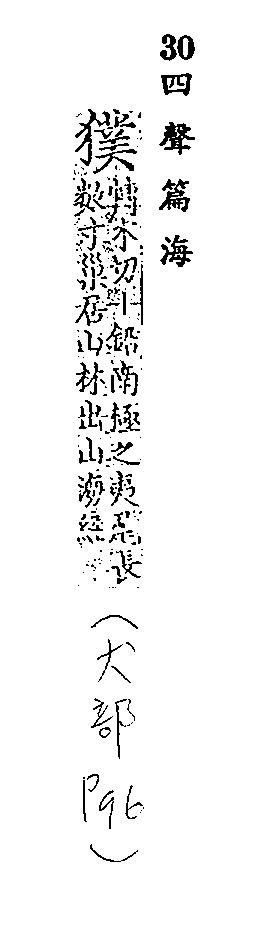 30四聲篇海
獛
博木切丨鉛南極之夷尾長
數寸巢居山林出山海經
(犬部 P96)